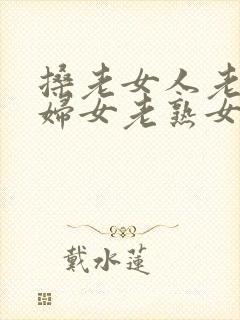 搡老女人老
婦女老熟女
戴水蓮